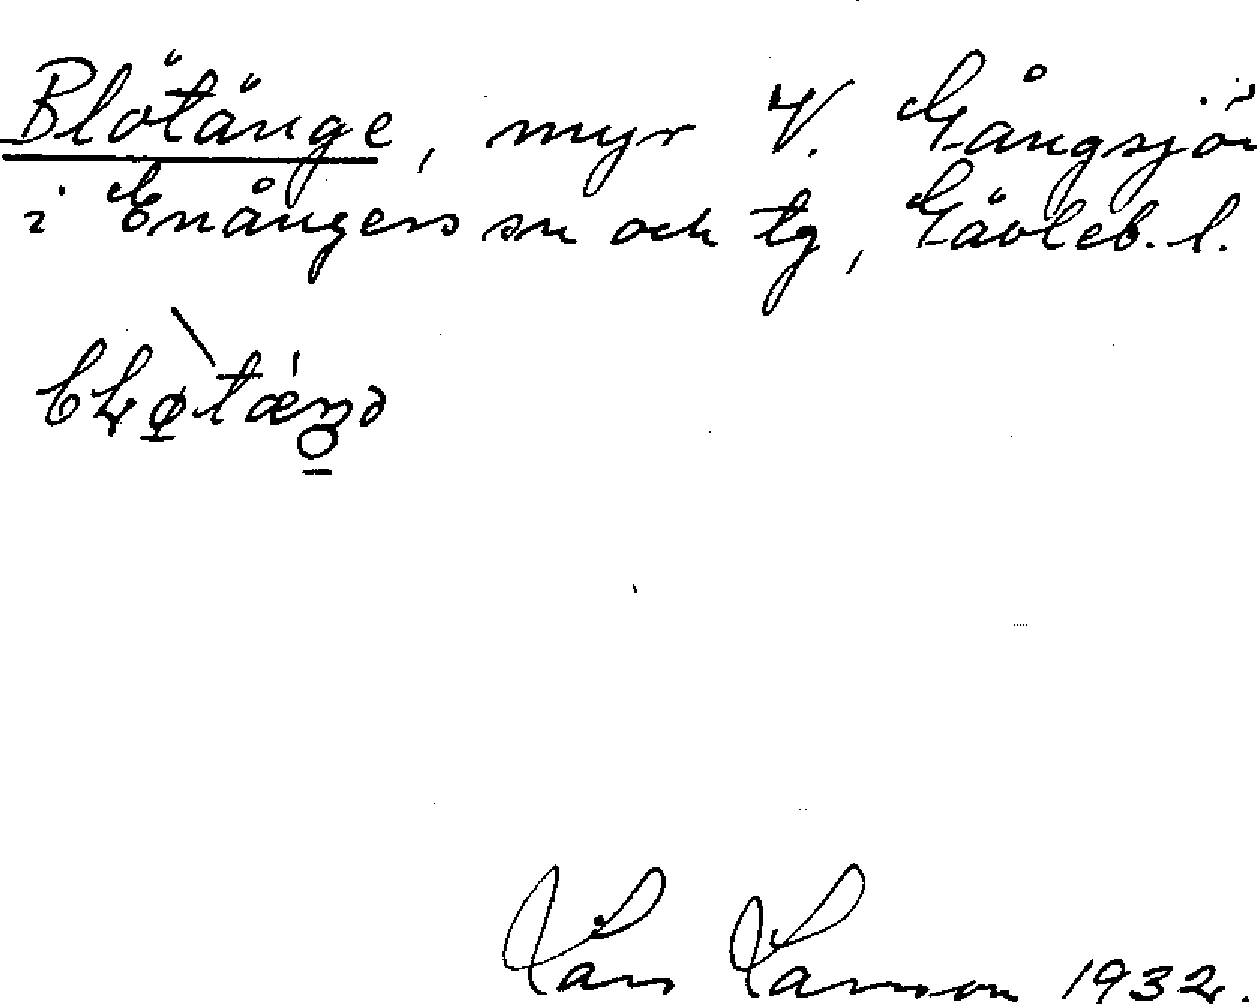 Blötänge, myr V. Gångsjön
i Enångers sn och tg, Gävleb. l.
Lars Larsson 1932.